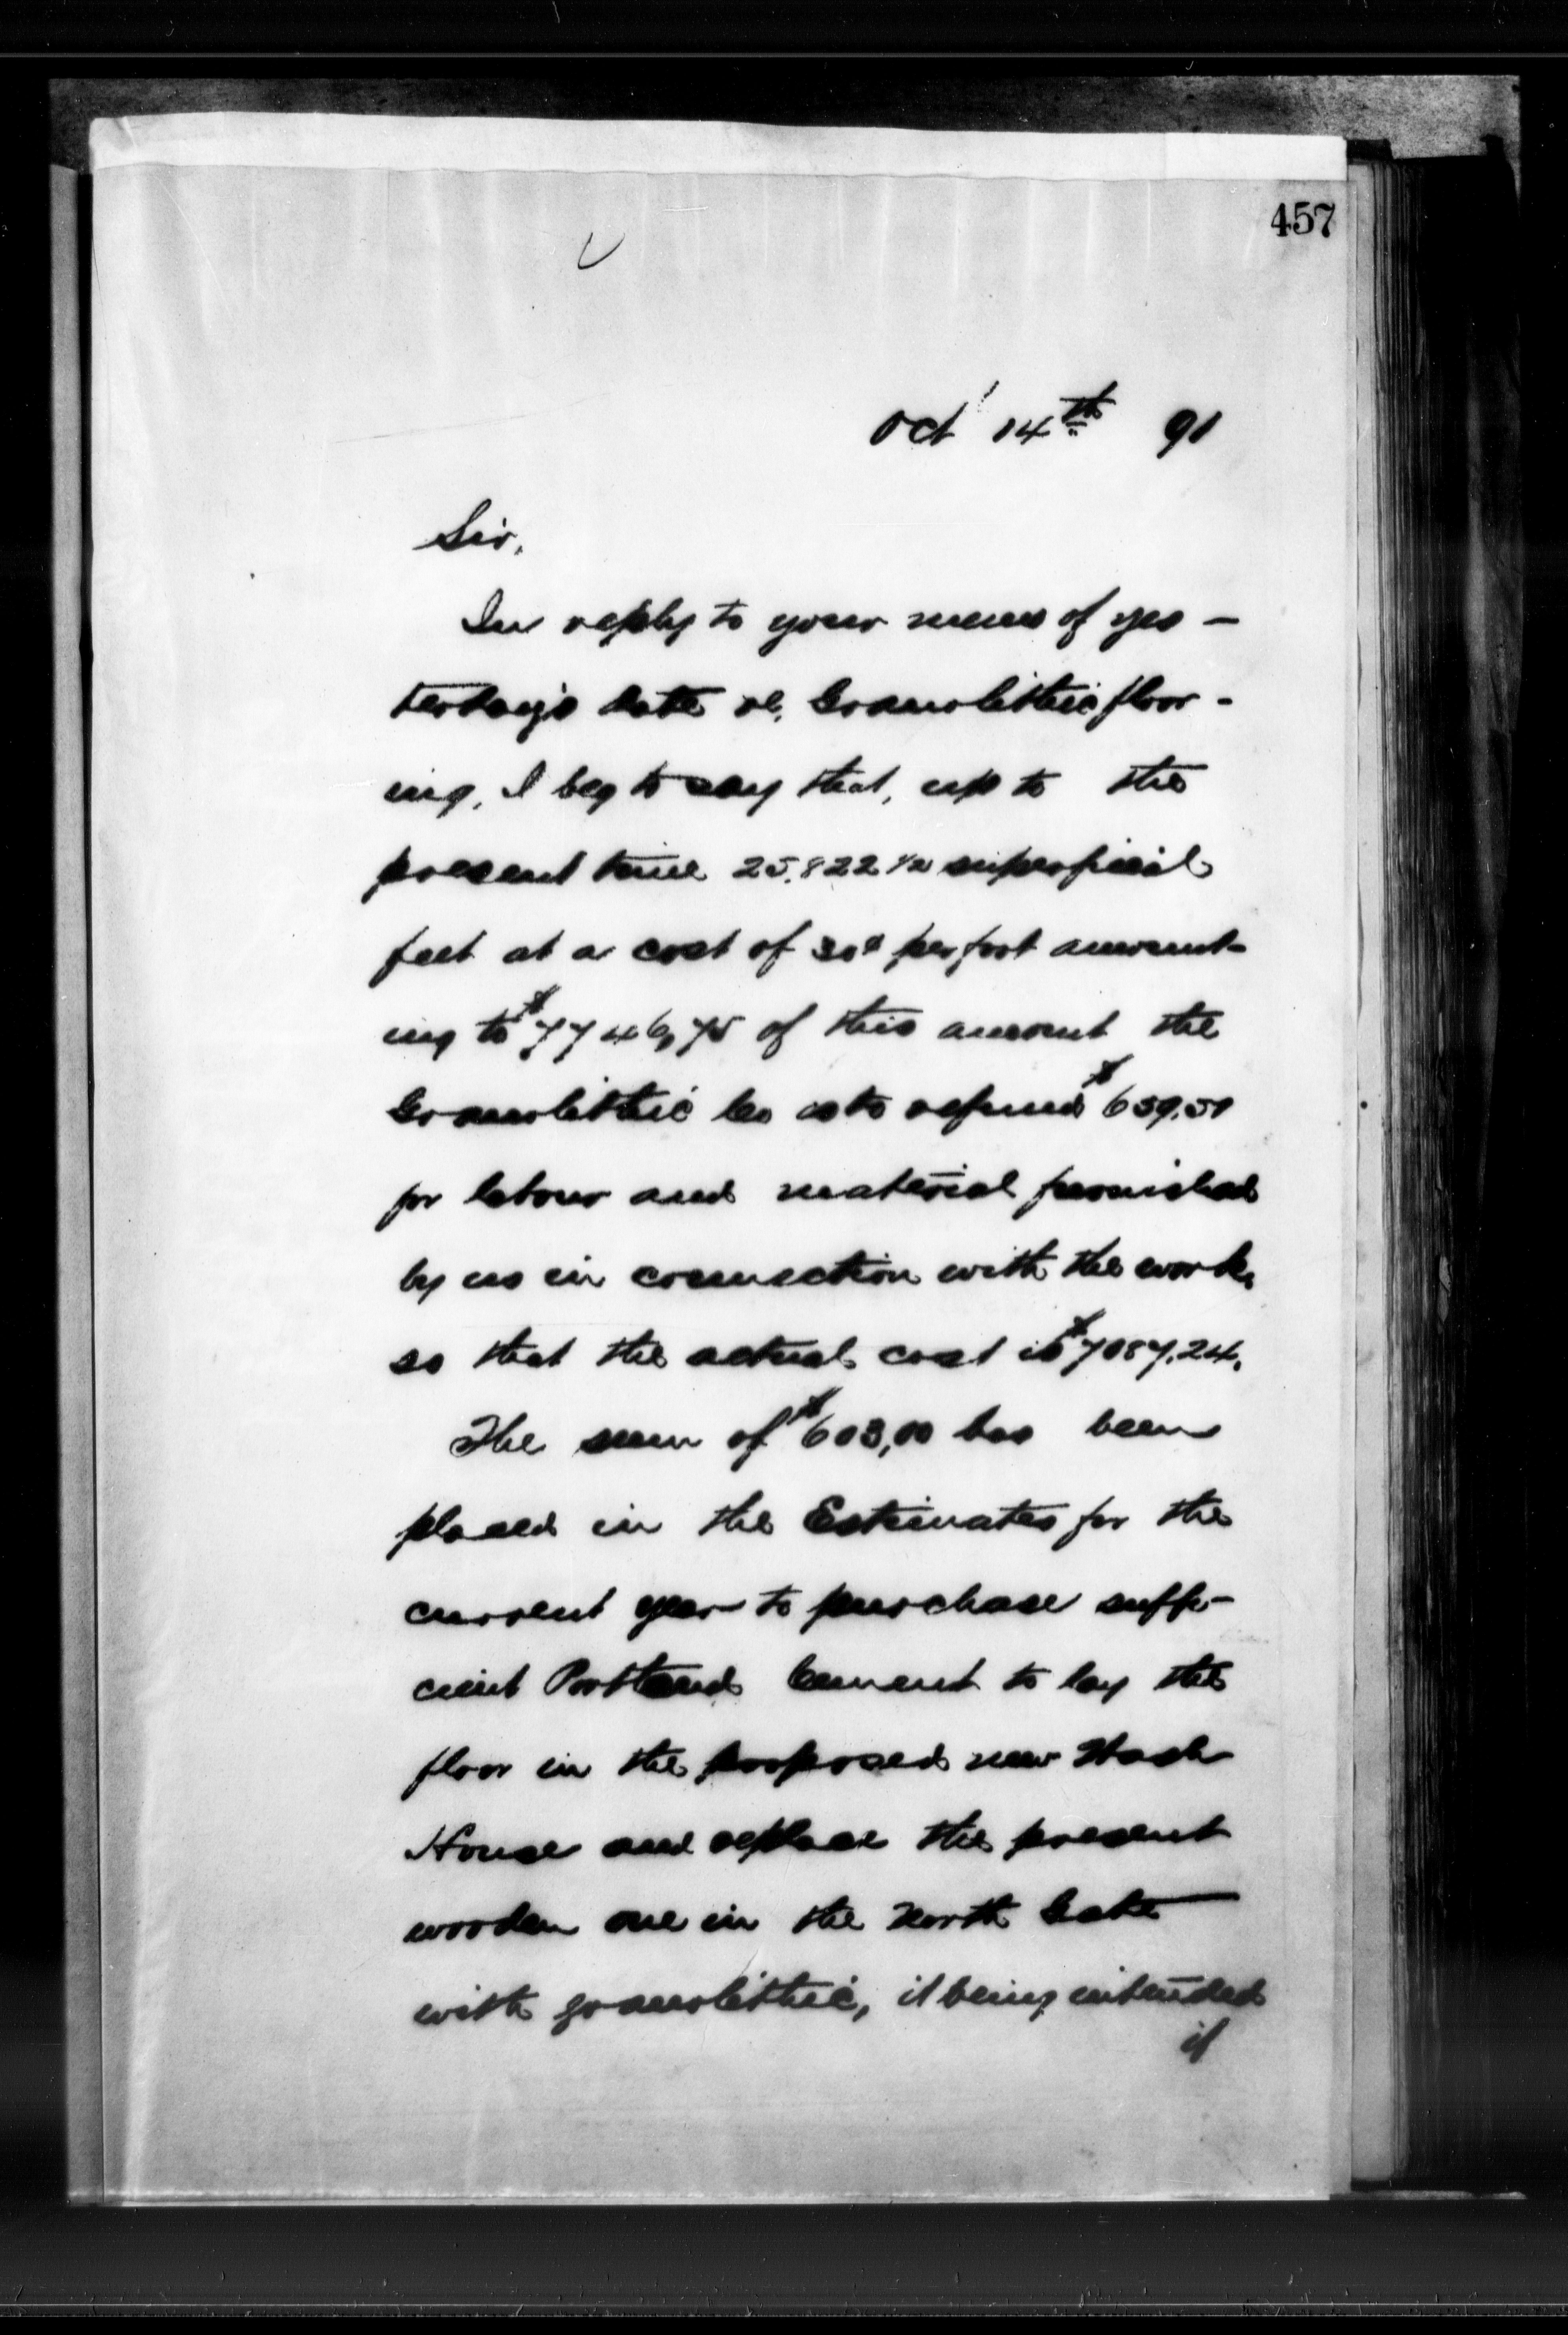 457
Oct 14th 91
Sir,
In reply to your memo of yes-
terday's date re, Granolithic floor-
ing, I beg to say that, up to the
present time 25,822 1/2 superficial
feet at a cost of 30¢ per foot amount-
ing to $7746,75 of this amount the
Granolithic Co is to refund $659.51
for labour and material furnished
by us in connection with the work,
so that the actual cost is $7087.24.
The sum of $603,00 has been
placed in the Estimates for the
current year to purchase suffi-
cient Portland Cement to lay the
floor in the proposed new Wash
House and replace the present
wooden one in the North Gate
with granolithic, it being intended
if